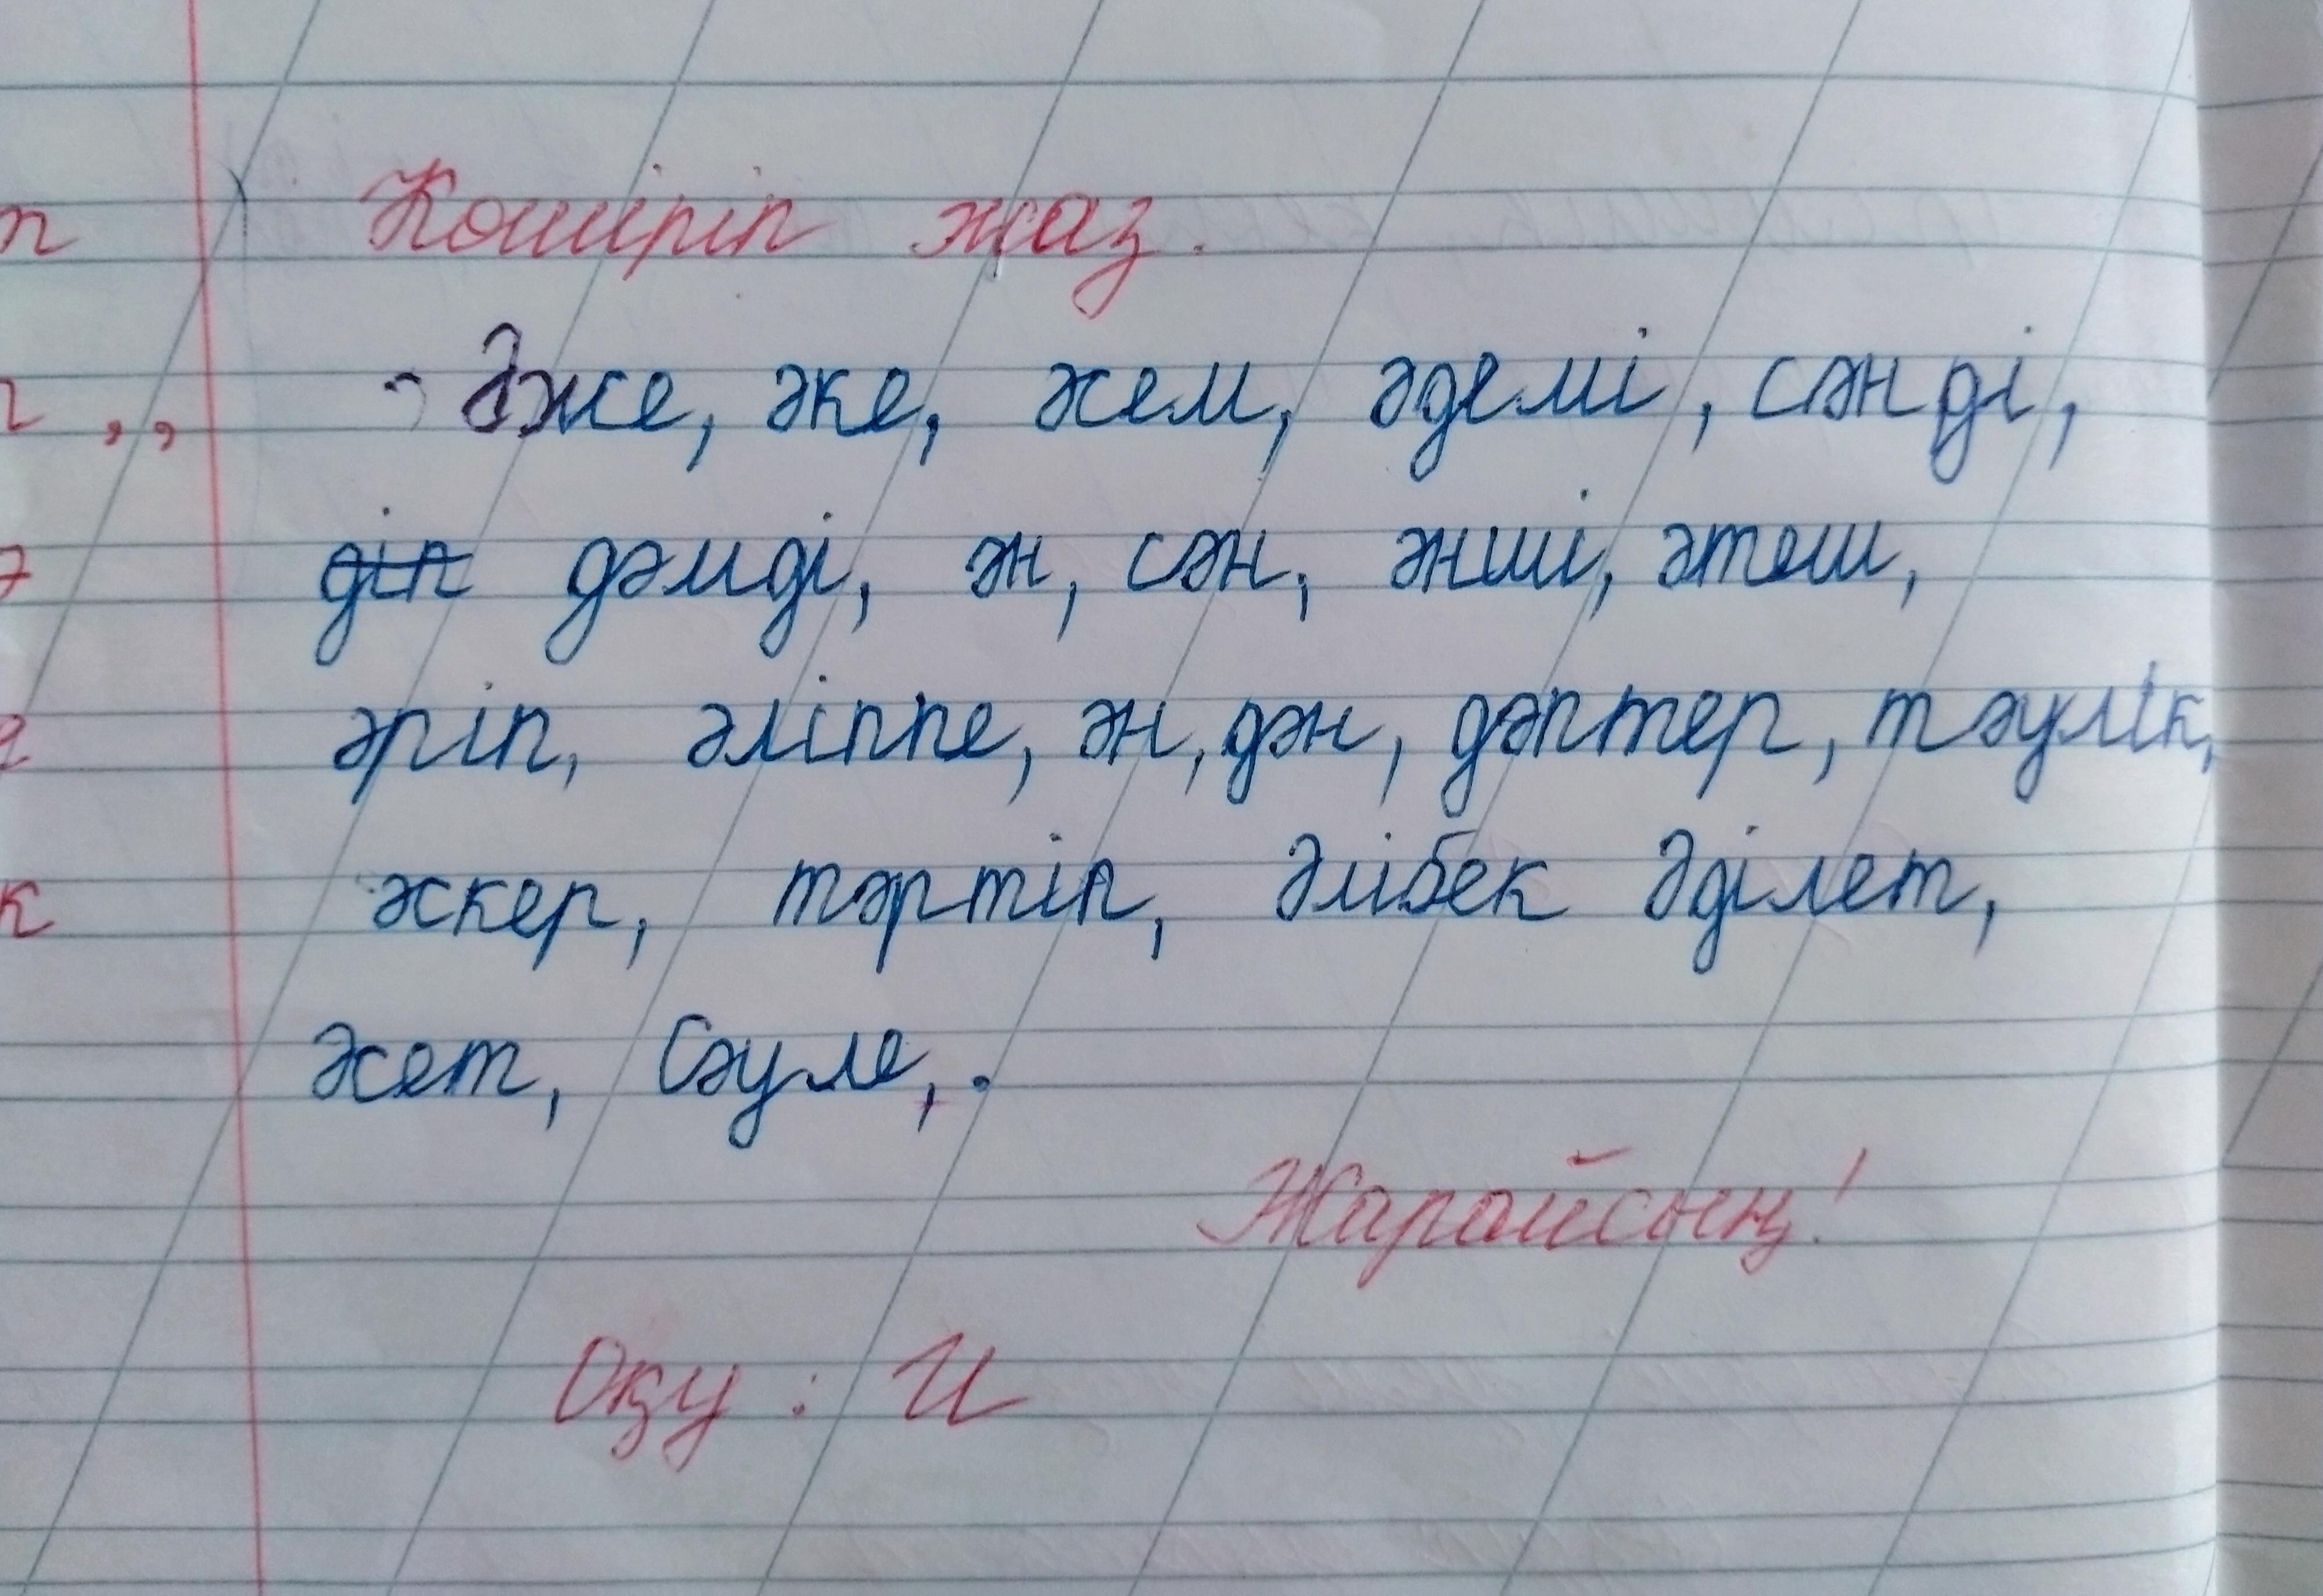 Көшіріп жаз.
Әже, әке, әсем, әдемі, сәнді,
діп дәмді, ән, сән, әнші, әтеш,
әріп, әліппе, ән, дән, дәптер, тәулік,
әскер, тәртіп, Әлібек Әділет,
Әсет, Сәуле,.
Жарайсың!
Оқу: И